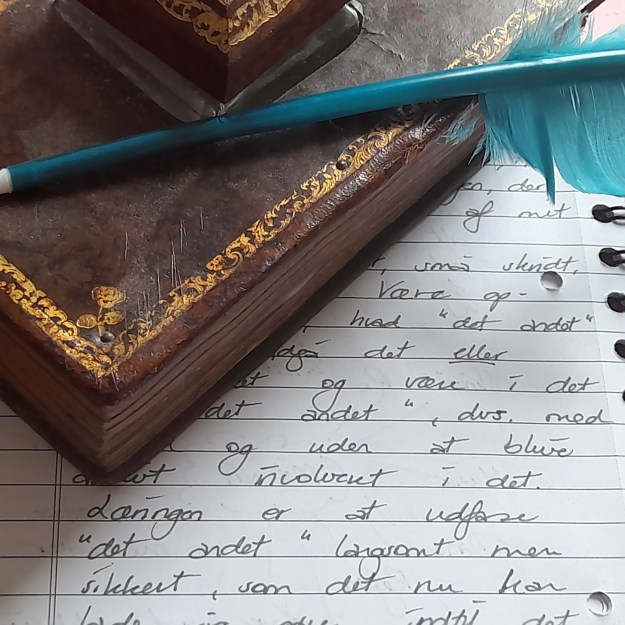 der
af mit
, små skridt.
være op-
hvad "det andet"
det eller
og være i det
det andet", dvs. med
og uden at blive
involveret i det.
Læringen er at udføre
"det andet" langsomt men
sikkert, som det nu kan
indtil det